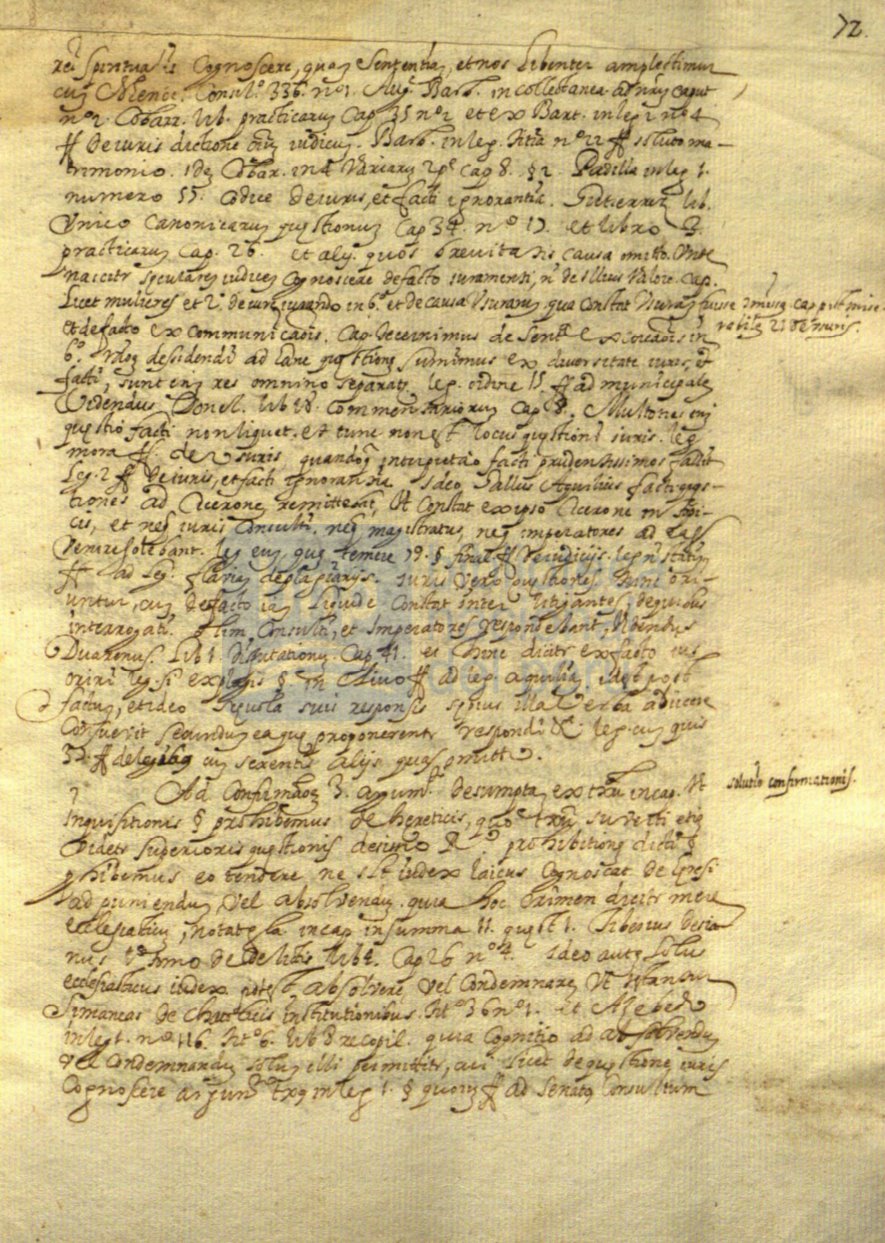 72.
rei spiritualis cognoscere, quam sententiam, et nos libenter amplectimur
cum Menoc. Consil.º 336. nº 1. Aug. Barb. in collectanea ad hunc caput
nº 2. Cobarr. lib. practicarum Cap. 35 nº 2 et ex Bart. in leg. 2 nº 4
ff de iuris dictione omn. iudicum. Barb. in leg. titia nº 22 ff soluto ma-
trimonio. idem Cobar. in 4 Variarum 2 p.e cap 8. § 2. Padilla in leg 1.
numero 55. Codice de iuris, et facti ignorantia. Gutierrez lib.
Unico Canonicarum quęstionum Cap 34. nº 17. et libro 3.
practicarum Cap. 26. et alij quos brevitatis causa omitto. Unde
nascitur secularem iudicem cognoscere de facto iuramenti, nº de illius valore. Cap.
Licet mulieres et 2. de iureiurando in 6.º et de causa Usurarum qua constat Usuram fuisse Cap. post mise-
rabilem 21 de usuris.
et de facto excommunicaõis. Cap. decernimus de sent.ª excoicaõis in
6.º ratio dessidendi ad hanc quęstionem sumimus ex diversitate iuris, et
facti, sunt enim res omnino separatę leg. ordine 15. ff ad municipalem
Videndus Donel. lib 18. commentariorum Cap 8. Multoties enim
quęstio facti non liquet. et tunc non est locus quęstioni iuris. leg
mora ff. de usuris, quandoq interpretaõ facti prudentissimos fallit
Leg. 2 ff de iuris, et facti ignorantia. Ideo Gallus Aquilius facti quęs-
tiones ad Ciceronem remittebat, Ut constat ex ipso Cicerone in topi-
cis, et neq iuris Consulti, neq magistratus, neq imperatores ad eas
venire solebant. leg eum qui temere 79. § final ff de iudicijs. leg
ff ad leg. flaviam de plagiarijs. iuris vero quęstiones hinc ori-
untur, cum de facto iam liquide constat inter litigantes, de quibus
interrogati olim, Consulti, et Imperatores respondebant, Videndus
Duarenus. Lib 1 disputationum Cap. 41. et hinc dicitur ex facto ius
oriri leg. si ex plagis § in Clivo ff ad leg. aquiliam, idest post
factum, et ideo Scęvola suis responsis sępius illa verba adijcere
consuevit secundum ea quę proponerentur respondi &c. leg. cum quis
37. ff de legatis cum sexcentis alijs quas omitto.
Ad confirmaõem 3. argum.i desumptam ex textu in cap. Ut
solutio confirmationis.
Inquisitionis § prohibemus de hereticis, quo textu
videtur superioris quęstionis decisio R.º prohibitionem dicti §
prohibemus eo tendere ne scilicet iudex laicus cognoscat de heresi
ad puniendum, vel absolvendum. quia hoc crimen dicitur mere
ecclesiasticum, notat gla in cap in summa 11. quęst 1. Tiberius decia-
nus tomo de delictis lib 4. Cap 26 nº 4. ideo autem solus
ecclesiasticus iudex potest absolvere vel condemnare, Ut
Simancas de Catholicis institutionibus. titº 36 nº 1. et Azebedo
in leg 1. nº 116. titº 6. lib 8 recopil. quia cognitio ad absolvendum
vel condemnandum soli illi permittitur, cui licet de quęstione iuris
cognoscere in leg 1. § quorum ff ad Senatus Consultum